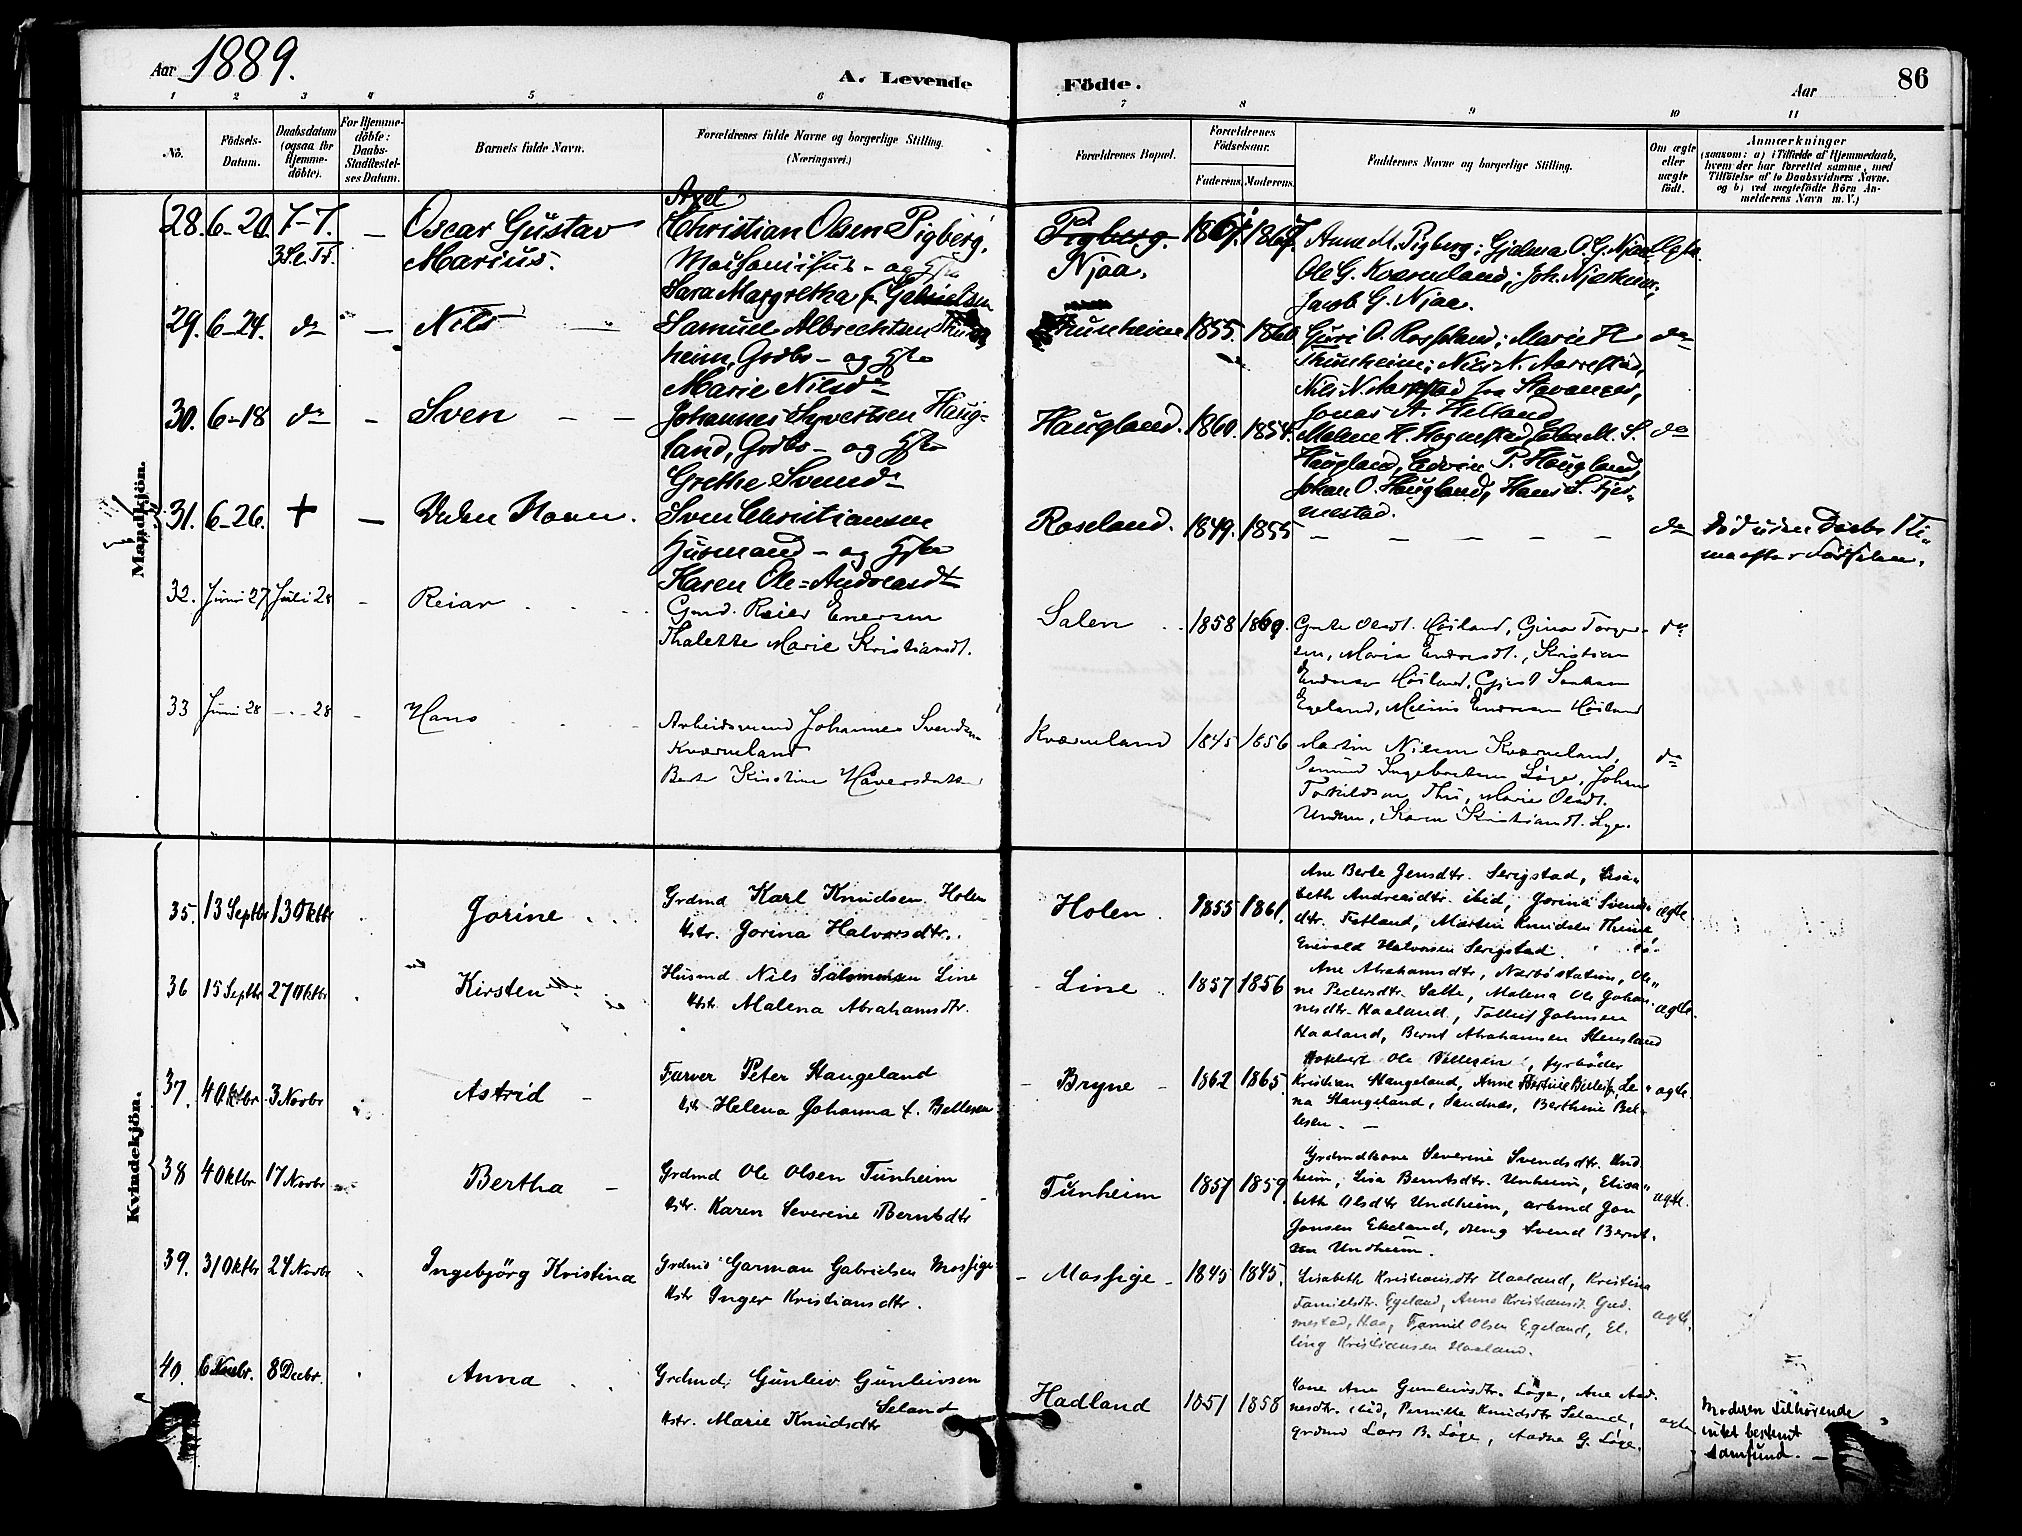 Aar 1889.
A. Levende Födte.
Aar
86
1 2 3 4 5 6 7 8 9 10 11
No.
Födsels-Datum.
Daabsdatum (ogsaa for Hjemme-döbte).
For Hjemme-döbte: Daabs-Stadfæstel-ses Datum.
Barnets fulde Navn.
Forældrenes fulde Navne og borgerlige Stilling. (Næringsvei.)
Forældrenes Bopæl.
Forældrenes Födselsaar.
Faderens. Moderens.
Faddernes Navne og borgerlige Stilling.
Om ægte eller uægte födt.
Anmærkninger
(saasom: a) i Tilfælde af Hjemmedaab,
hvem der har forrettet samme, med
Tilföielse af to Daabsvidners Navne.
og b) ved uægtefödte Börn An-
melderens Navn m. V.)
Mandkjön.
28. 6-20. 7-7. 3 S. e. Tr. – Oscar Gustav Marius.
Axel
Christian Olsen Pigberg,
og Hst.
Sara Margretha f. Gabrielsen
Pigberg. Njaa.
1861. 1867.
Anne M. Pigberg; Gjelina O. G. Njaa
Ole G. Kværneland; Joh. Njærheim;
Jacob G. Njaa.
Ægte.
29. 6-24. do – Nils –
Samuel Albrechtsen Thun-
heim, Grdbr – og Hst.
Marie Nilsdr
Thunheim 1855. 1860.
Guri O. Rosseland; Marie
Thunheim; Nils N. Aarrestad,
Nils N. Aarrestad fra Stavanger,
Jonas A. Helland
do
30. 6-18 do – Sven – –
Johannes Syvertsen Haug-
land, Grdbr – og Hst.
Grethe Svendr
Haugland. 1860. 1854.
Malene H. Hognestad, Elen M. S.
Haugland, Edvin P. Haugland,
Johan O. Haugland, Hans S. Tjer-
nestad.
do
31. 6-26. + – Uden Navn.
Sven Christiansen
Husmand – og Hst.
Karen Ole-Andreasdr
Roseland. 1849. 1855 – – – – –
do
Död uden Daab 1 Ti-
ma efter Födselen.
32. Juni 27 Juli 28 - Reiar . . .
Gmd. Reier Enersen
Thalette Marie Kristiansdt.
Salen . . 1858 1860.
Grete Olsdt. Höiland, Gina Torger-
sen, Maria Endresdt., Kristian
Endresen Höiland, Gjert
Egeland, Endresen Höiland
do
33 Juni 28 - - 28 - Hans . . .
Arbeidsmand Johannes Svendsen
Kværneland
Berte Kirstine Håversdatter
Kværneland 1845 1856
Martin Nilsen Kværneland,
Ingebretsen Lÿge, Johan
Torkildsen Thu, Marie Olsdt.
Undem, Karen Kristiansdt. Lye.
do
Kvindekjön.
35. 13 Septbr 13 Oktbr . Jorine . .
Grdmd Karl Knudsen Holen
Hstr. Jorina Halvorsdtr.
Holen . 1855 1861.
Ane Berte Jensdtr. Serigstad, Lisa-
beth Andreasdtr. ibid, Jorina Svends-
dtr. Fotland, Martin Knudsen Thime
Enevald Halvorsen Serigstad.
ægte
36 15 Septbr 27 Oktbr . Kirsten
Husmd Nils Salomonsen Line
Hstr. Malena Abrahamsdtr.
- Line . 1857 1856
Ane Abrahamsdtr, Narböstation, Ole-
ne Pedersdtr. Salte, Malena Ole Johan-
nesdtr. Haaland, Tolleif Johnsen
Haaland, Bernt Abrahamsen Stensland
ægte.
37. 4 Oktbr. 3 Novbr Astrid -
Farver Peter Stangeland
Hstr Helena Johanna f. Bellesen
- Bryne - 1862 1865.
Ole Vellesen, fyrböder
Kristian Stangeland, Anne Bertine Le-
na Stangeland, Sandnæs, Berthine Bel-
lesen. –
ægte.
38 4 Oktbr 17 Novbr Bertha –
Grdmd Ole Olsen Tunheim
Hstr. Karen Severine Berntsdtr
Tunheim 1857 1859.
Grdmdkone Severine Svendsdtr. Und-
heim, Lisa Berntsdtr. Unheim, Elisa-
beth Olsdtr Undheim, arbmd Jon
Jonsen Ekeland, Svend Bernt-
sen Undheim.
ægte.
39. 3 Oktbr 24 Novbr Ingebjörg Kristina
Grdmd Garman Gabrielsen Mossige
Hstr Inger Kristiansdtr.
- Mossige - 1845 1845.
Lisabeth Kristiansdtr Haaland, Kristina
Tamielsdtr. Egeland, Anna Kristiansdt. Gud-
mestad, Haa, Tamiel Olsen Egeland, El-
ling Kristiansen Haaland.
ægte.
40. 6 Novbr. 8 Decbr. . Anna . .
Grdmd. Gunleiv Gunleivsen
Seland
Hstr. Marie Knudsdtr
Hadland 1851 1858
Ane Gunleivsdtr. Lÿge, Ane Aad-
nesdtr. ibid, Pernille Knudsdtr Seland,
grdmd Lars B. Lÿge, Aadne G. Lÿge.
ægte
Moderen tilhörende
intet bestemt
samfund. –